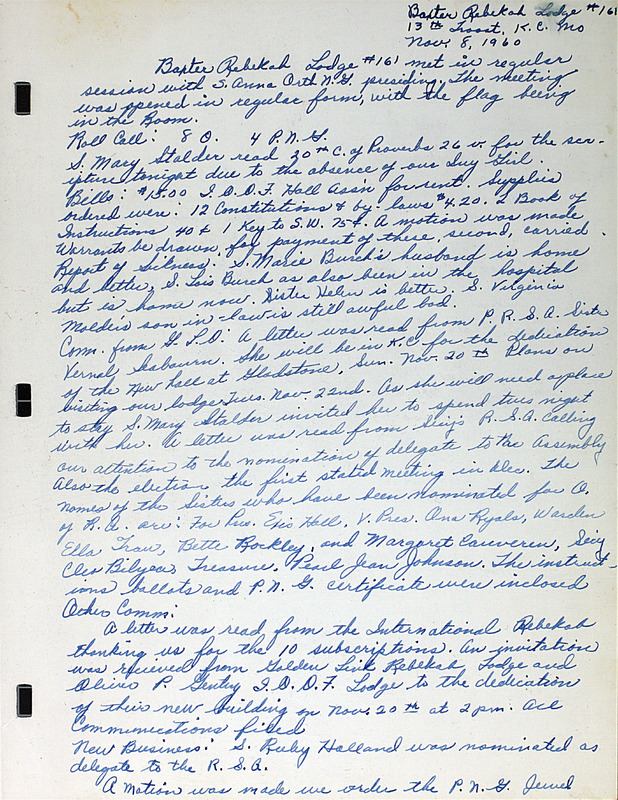 Baxter Rebekah Lodge #161
13th Troost, K.C. Mo
Nov. 8, 1960
Baxter Rebekah Lodge #161 met in regular
session with S. Anna Orth N.G. presiding. The meeting
was opened in regular form, with the flag being
in the Room.
Roll Call: 8 O. 4 P.N.G.
S. Mary Stalder read 30th C. of Proverbs 26 v. for the scr-
ipture tonight due to the absence of our Guy Girl.
Bills: $15.00 I.O.O.F. Hall Assn for rent. Supplies
ordered were: 12 Constitutions & by-laws $4.20. 2 Book of
Instructions 40¢ 1 Key to S.W. 75¢. A motion was made
Warrants be drawn for payment of these, second, carried.
Report of Sickness: S. Marie Burch's husband is home
and better, S. Lois Burch as also been in the hospital
but is home now. Sister Helen is better. S. Virginia
Molder's son in-law is still awful bad.
Comm. from G.L.O: A letter was read from P.R.S.A. Sister
Vernal. She will be in K.C. for the dedication
of the New hall at Gladstone, Sun. Nov. 20th Plans on
visiting our lodge Tues. Nov. 22nd. As she will need a place
to stay S. Mary Stalder invited her to spend tues night
with her. A letter was read from Secy's R.S.A. Calling
our attention to the nomination of delegate to the Assembly
Also the election the first stated meeting in Dec. The
names of the Sisters who have been nominated for O.
of R.A. are: For Pres. Exie Hall, V. Pres. Ona Ryals, Warden
Ella Traw, Bette Rockley, and Margaret Cauveren, Secy
Cleo Bilyeas, Treasure, Pearl Jean Johnson. The instruct-
ions ballots and P.N.G. certificate were inclosed
Other Comm:
A letter was read from the International Rebekah
thanking us for the 10 subscriptions. An invitation
was recieved from Golden Link Rebekah Lodge and
Olivio P. Gentry I.O.O.F. Lodge to the dedication
of their new building on Nov. 20th at 2 pm. All
Communications filed
New Business: S. Ruby Holland was nominated as
delegate to the R.S.A.
A Motion was made we order the P.N.G. Jewel